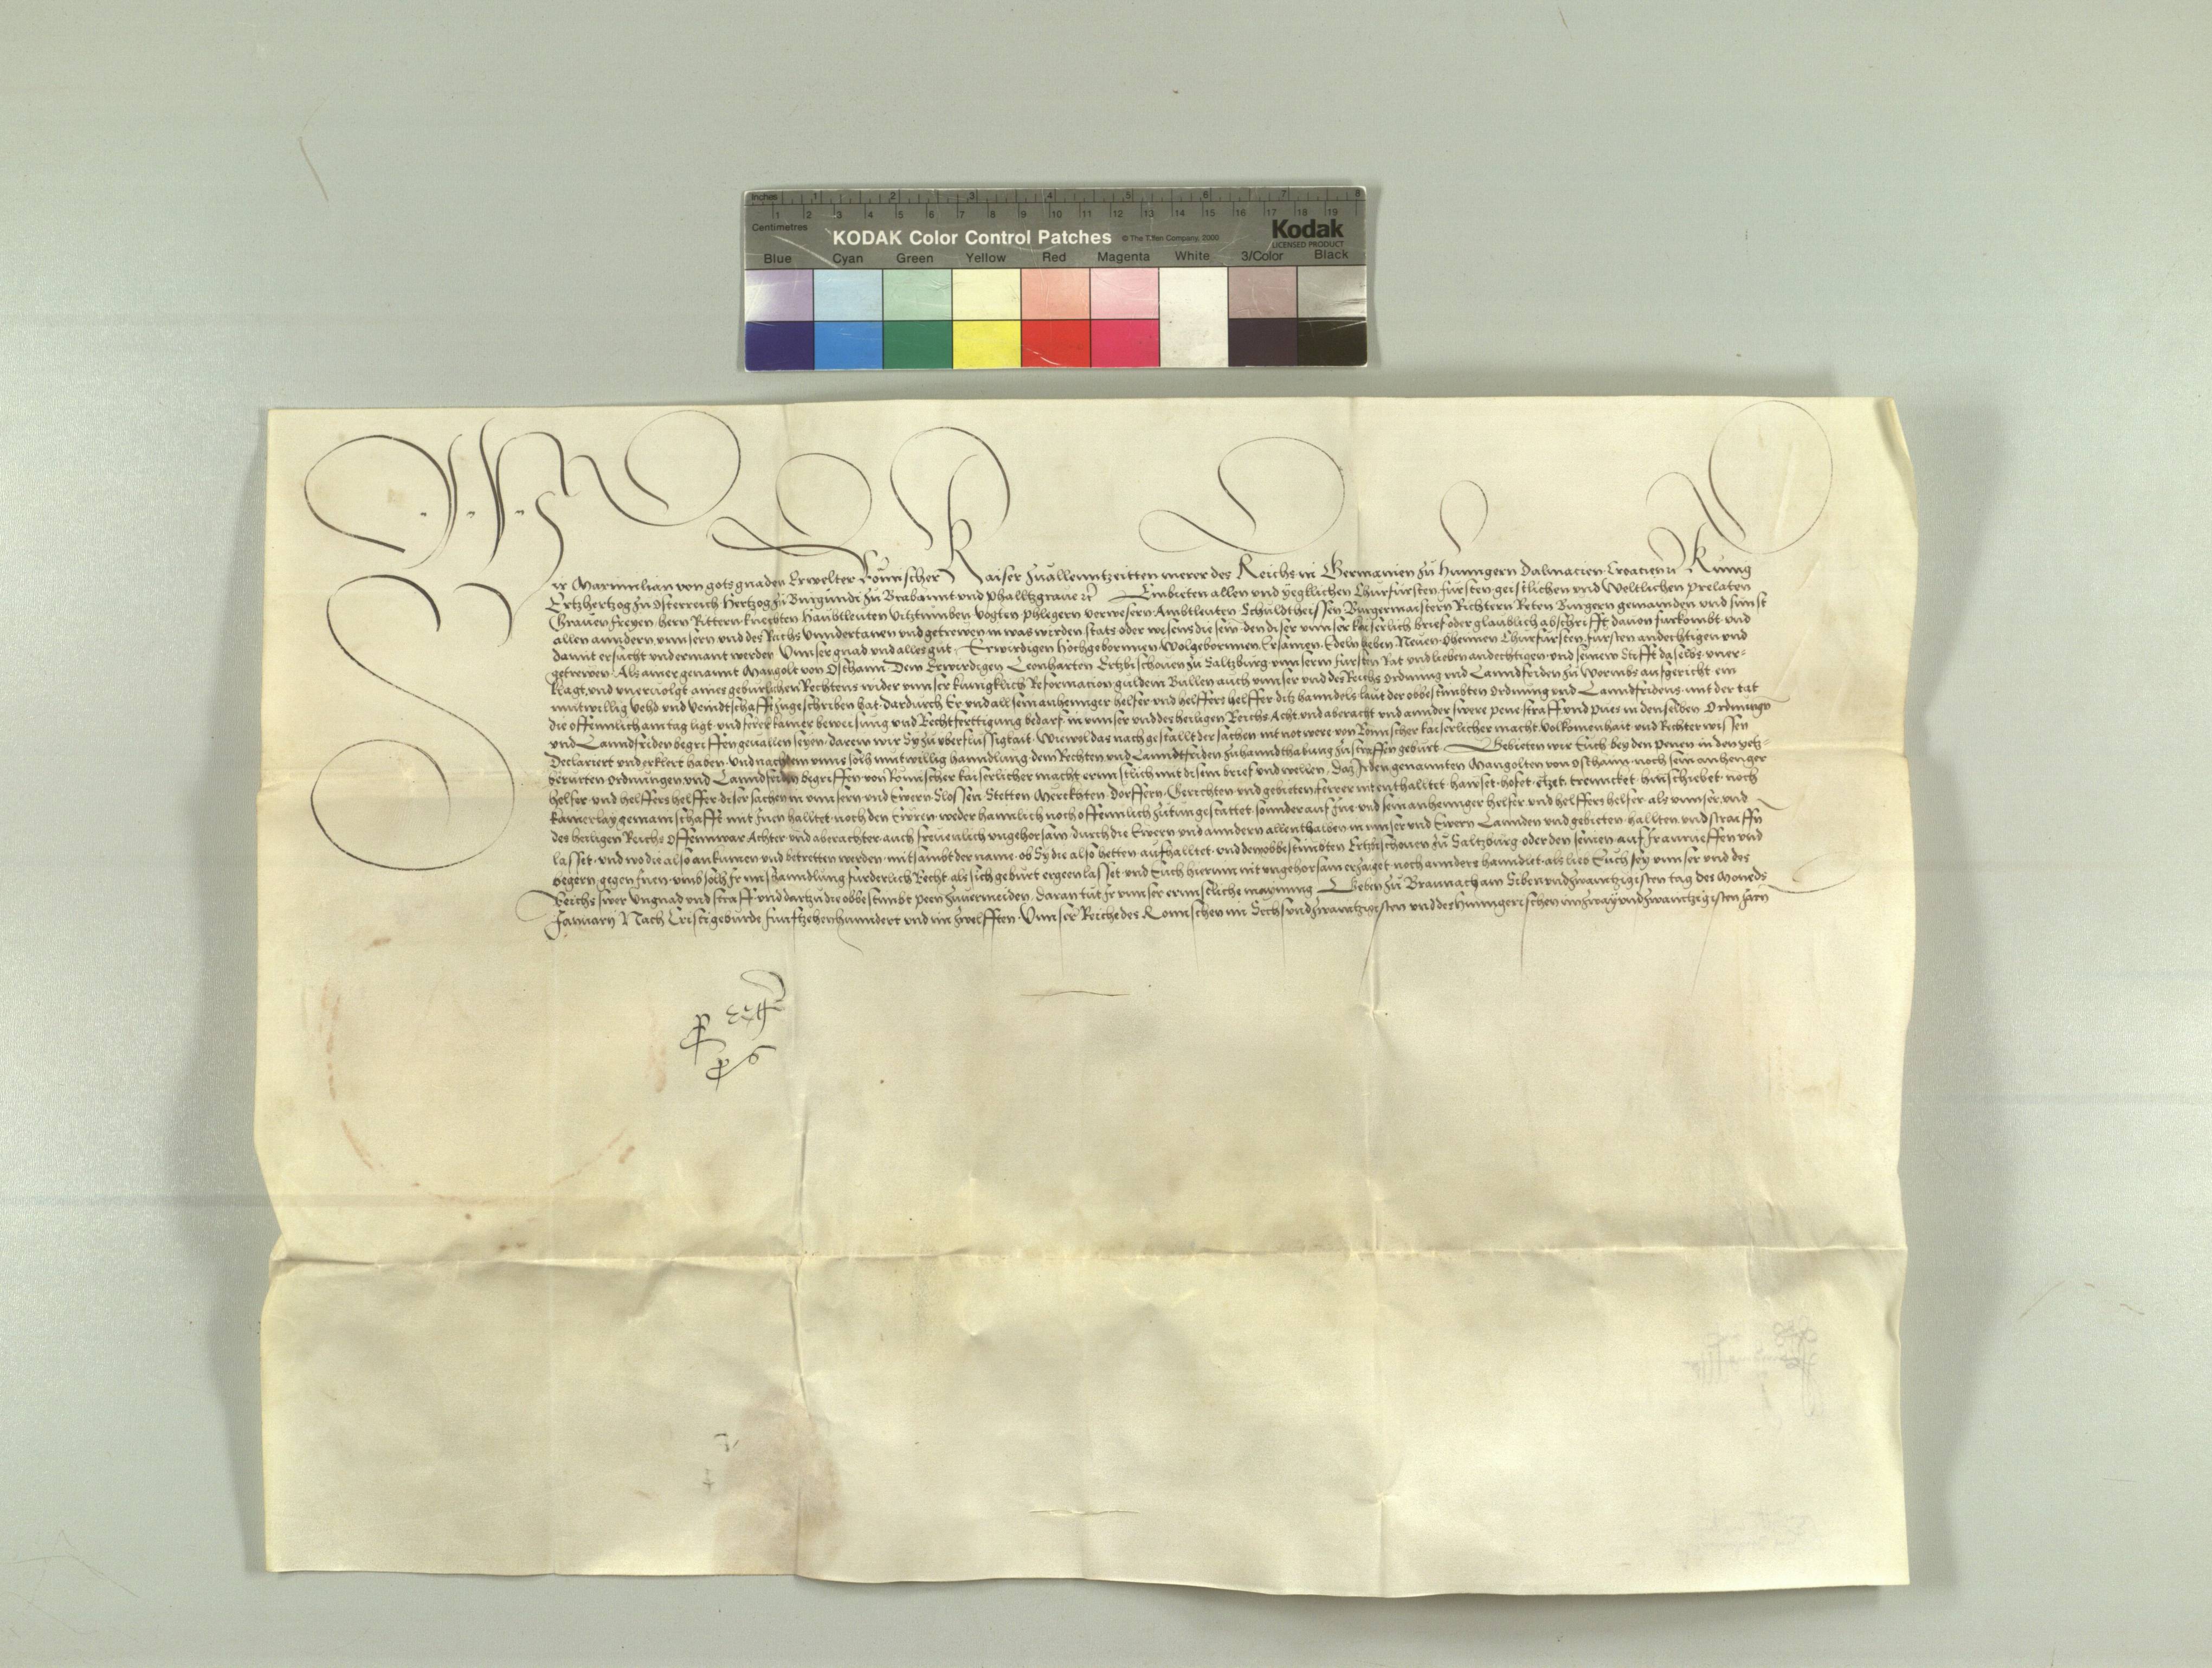 Inches 1 2 3 4 5 6 7 8
1 2 3 4 5 6 7 8 9 10 11 12 13 14 15 16 17 18 19
Centimetres
KODAK Color Control Patches © The Tiffen Company, 2000 Kodak
LICENSED PRODUCT
Blue Cyan Green Yellow Red Magenta White 3/Color Black
Wir Maximilian von gots gnaden Erwelter Römischer Kaiser zuallenntzeitten merer des Reichs in Germanien zu Hunngern Dalmacien Croacien Kunig
Ertzhertzog zu Osterreich Hertzog zu Burgundi zu Brabannt vnd Phalltzgraue Embieten allen vnd yeglichen Churfursten fursten geistlichen vnd Weltlichen prelaten
Grauen freyen herrn Rittern knechten Haubtleuten Vitztumben Vogten phlegern verwesern Ambtleuten Schuldtheissen Burgermaistern Richtern Reten Burgern gemainden vnd sunst
allen anndern vnnsern vnd des Richs vnndertanen vnd getrewen in was wirden stats oder wesens die sein den diser vnnser kaiserlich brief oder glaublich abschrifft dauon furkombt vnd
damit ersucht vnd ermant werden Vnnser gnad vnd alles gut Erwirdigen Hochgebornnen Wolgebornnen Ersamen Edeln lieben Neuen Ohemen Churfursten fursten andechtigen vnd
getrewen Als ainer genannt Mangolt von Osthaim Dem Erwirdigen Leonharten Ertzbischouen zu Saltzburg vnnserm fursten Rat vnd lieben andechtigen vnd seinem Stifft daselbs vner-
klagt vnd vneruolgt aines geburlichen Rechtens wider vnnser kunigklich Reformacion guldein Bullen auch vnnser vnd des Reichs ordnung vnd Lanndfriden zu Wormbs aufgericht ein
mutwillig Vehd vnd Veindtschafft zugeschriben hat dardurch Er vnd all sein anhennger helfer vnd helffers helffer ditz hanndels laut der obbestimbten ordnung vnd Lanndfridens mit der tat
die offennlich am tag ligt vnd ferrer kainer beweisung vnd Rechtferttigung bedarf in vnnser vnd des heiligen Reichs Acht vnd aberacht vnd annder swere pene straff vnd pues in denselben Ordnung
vnd Lanndfriden begriffen geuallen seyen darein wir Sy zu vberflussigkait Wiewol das nach gestallt der sachen nit not were von Römischer kaiserlicher macht volkomenhait vnd Rechter wissen
Declariert vnd erklert haben vnd nachdem vnns solh mutwillig hanndlung dem Rechten vnd Lanndtfriden zu hanndthabung zustraffen geburt Gebieten wir Euch bey den penen in den yetz-
berurten ordnungen vnd Lanndfriden begriffen von Römischer kaiserlicher macht ernnstlich mit disem brief vnd wellen Daz Ir den genannten Mangolten von Osthaim noch sein anhenger
helfer vnd helffers helffer diser sachen in vnnsern vnd Ewern Slossen Stetten Merckhten dorffern Gerichten vnd gebieten ferrer nit enthalltet hawset hofet Etzet trenncket hinschiebet noch
kainerlay gemainschafft mit Inen halltet noch den Ewren weder haimlich noch offennlich zutun gestattet sonnder auf Ine vnd sein anhennger helfer vnd helffers helfer als vnnser vnd
des heiligen Reichs offennwar Achter vnd aberachter auch freuenlich vngehorsam durch die Ewern vnd anndern allenthalben in vnnser vnd Ewern Lannden vnd gebieten hallten vnd straiffn
lasset vnd wo die also ankumen vnd betretten werden mitsambt der name ob Sy die also hetten aufhalltet vnd dem obbestimbten Ertzbischouen zu Saltzburg oder den seinen auf Ir anrueffen vnd
begern gegen Inen vmb solh Ir mishanndlung furderlich Recht als sich geburt ergeen lasset vnd Euch hierinn nit vngehorsam erzaiget noch annders hanndlet als lieb Euch sey vnnser vnd des
Reichs swer Vngnad vnd straff vnd dartzu die obbestimbt peen zuuermeiden daran tut Ir vnnser ernnstliche maynung Geben zu am Sibenvndzwaintzigisten tag des Moneds
January Nach Cristi geburde funftzehenhunndert vnd im zwelfften Vnnser Reiche des Römischen im Sechsvndzwaintzigisten vnd des Hunngerischen im zwayvndzwaintzigisten Jarn